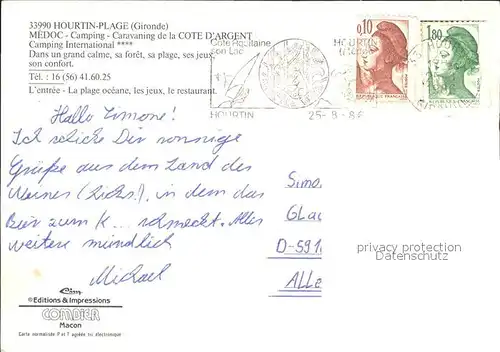 33990 HOURTIN-PLAGE (Gironde)
MÉDOC - Camping - Caravaning de la COTE D'ARGENT
Camping International ****
Dans un grand calme, sa forêt, sa plage, ses jeux,
son confort.
Tél. : 16 (56) 41.60.25
L'entrée - La plage océane, les jeux, le restaurant.
Cote Aquitaine
son Lac
HOURTIN
HOURTIN
25-8-86
0,10
1,80
Hallo Simone!
Ich schicke Dir sonnige
Grüße aus dem Land des
Weines (Lichs!), in dem das
Bier zum K... schmeckt. Alles
weitere mündlich
Michael
Simo
Glad
D-591
ALLE
privacy protection
Datenschutz
Cim
®Editions & Impressions
COMBIER
Macon
Carte normalisée P et T agréée ou électronique